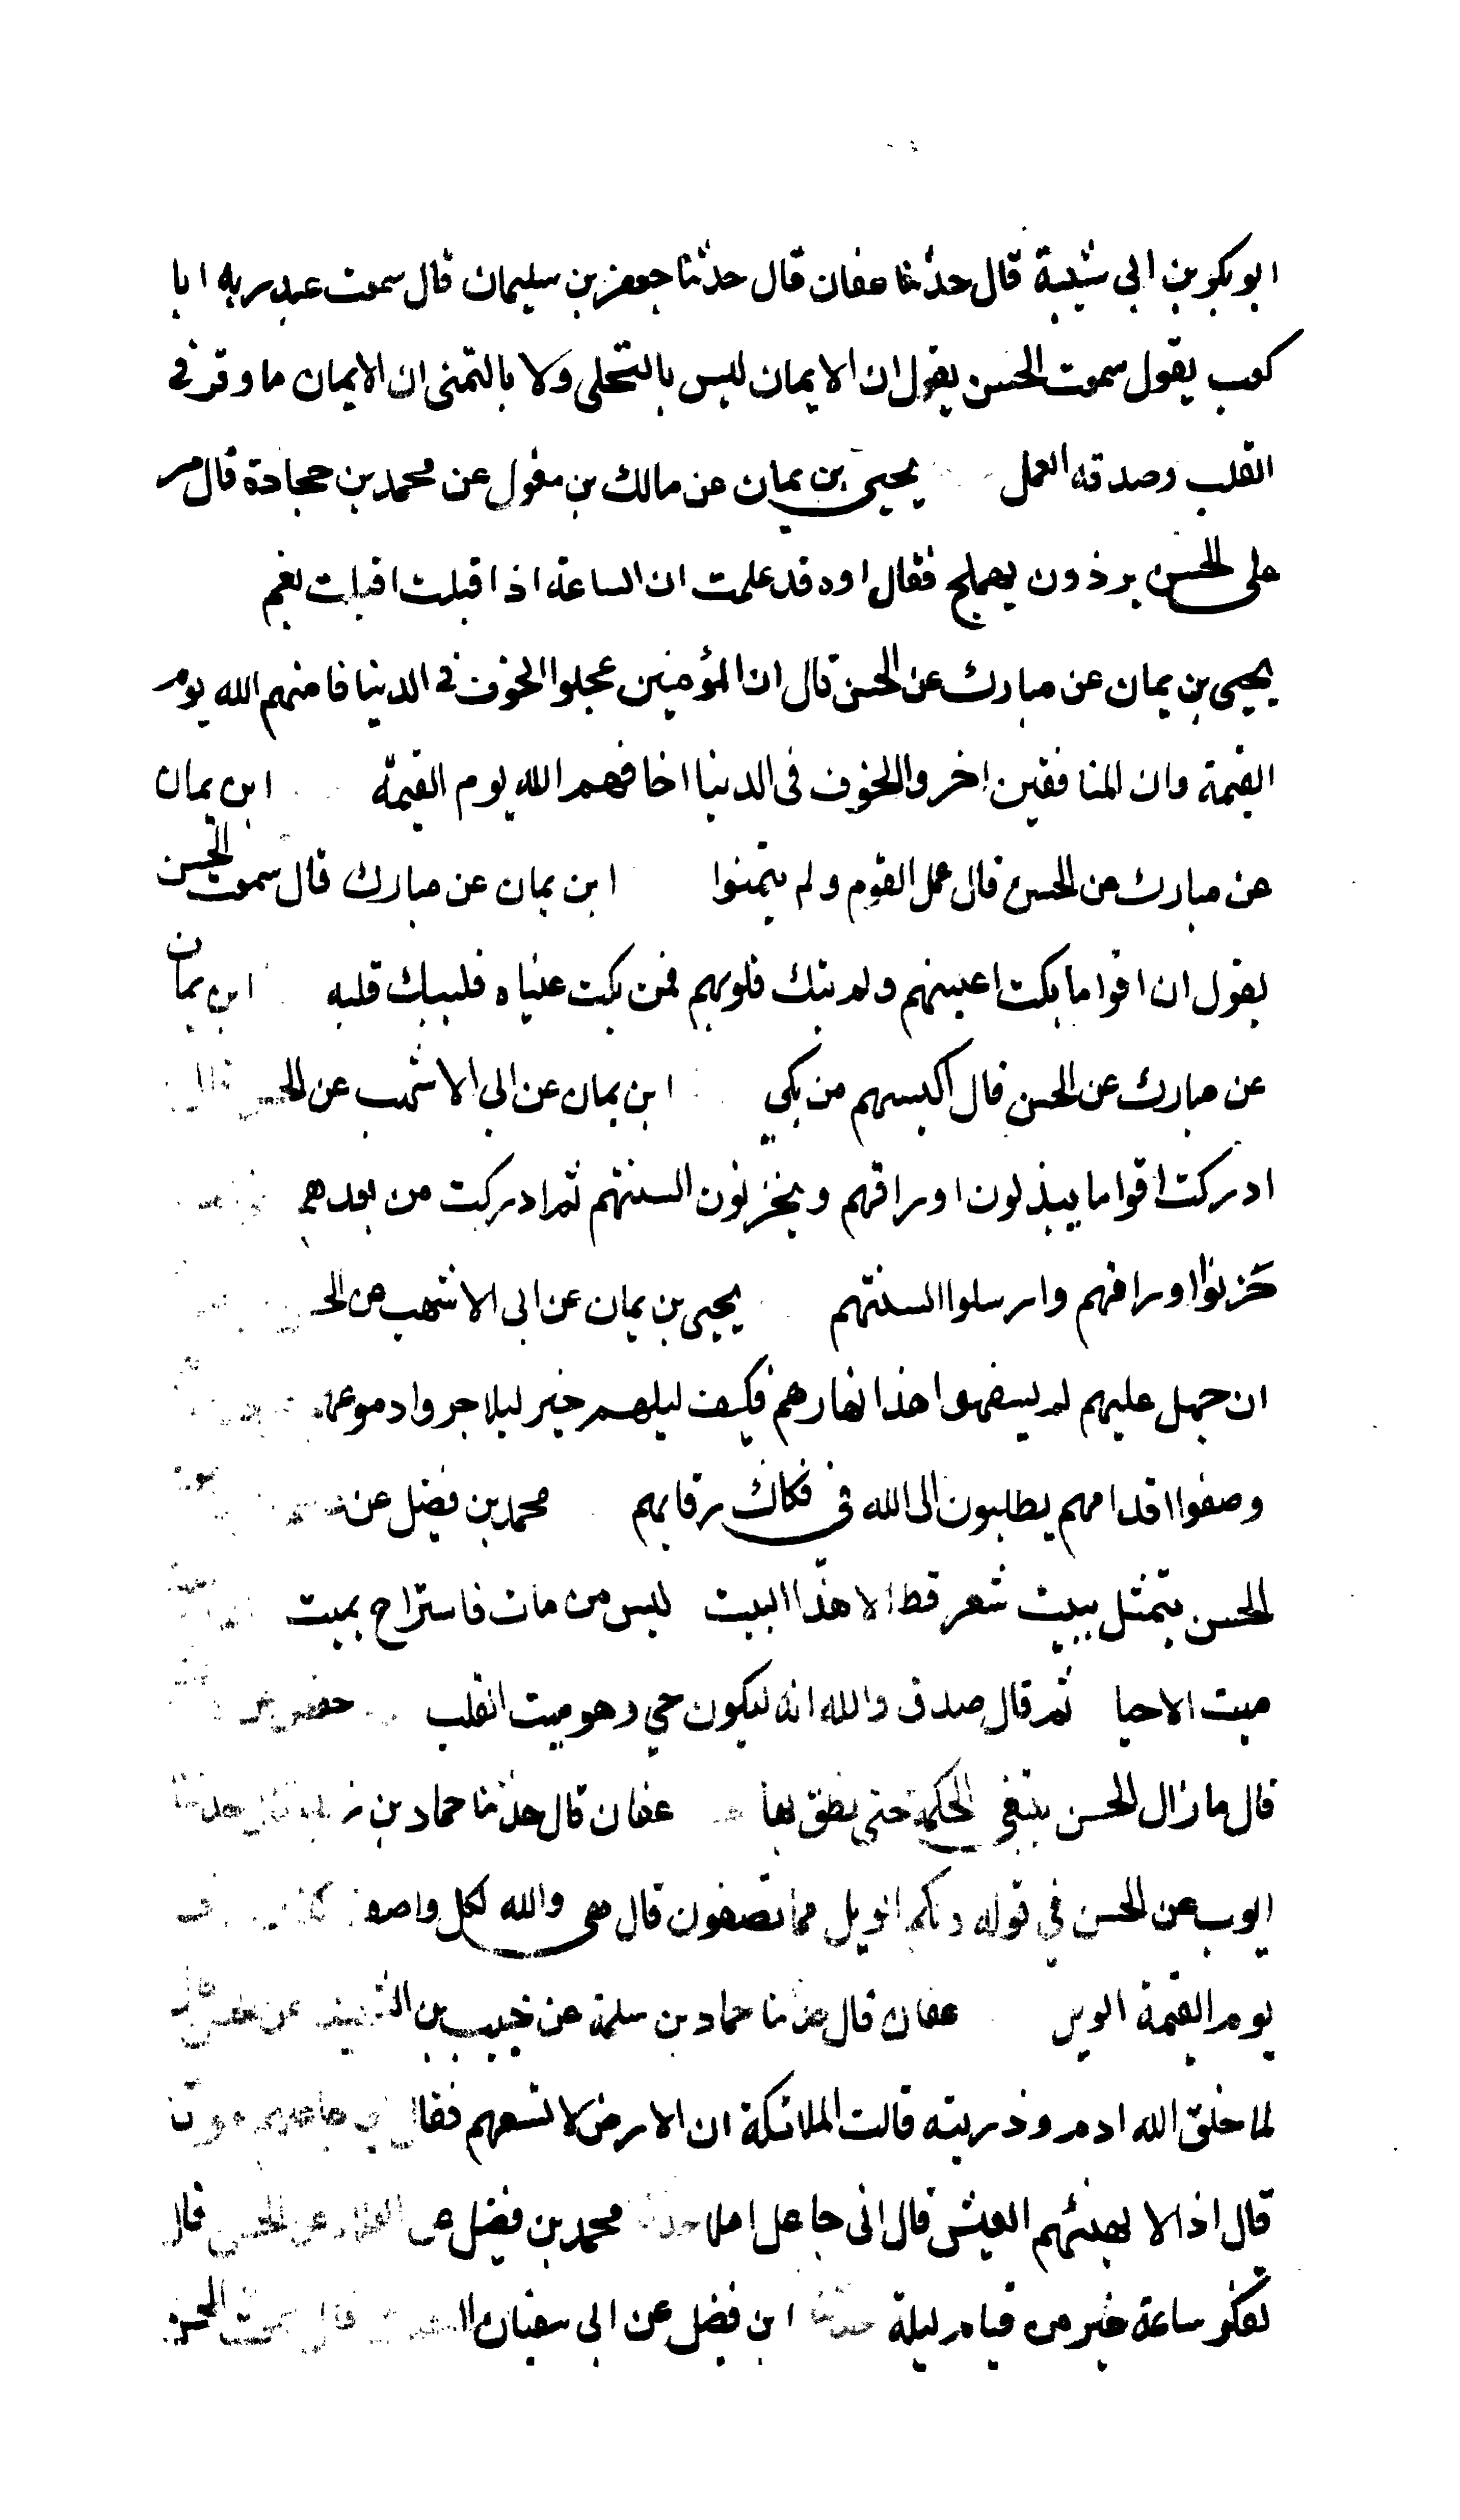 ابو بكر بن ابى شيبة قال حدثنا عفان قال حدثنا جعفر بن سليمان قال سمعت عبد ربه ابا
كعب يقول سمعت الحسن يقول ان الايمان ليس بالتحلى ولا بالتمنى ان الايمان ما وقر فى
القلب وصدقه العمل يحيى بن يمان عن مالك بن مغول عن محمد بن جحادة قال مر
على الحسن برذون يهملج فقال اوه قد علمت ان الساعة اذا اقبلت اقبلت بغم
يحيى بن يمان عن مبارك عن الحسن قال ان المؤمنين عجلوا الخوف فى الدنيا فامنهم الله يوم
القيمة وان المنافقين اخروا الخوف فى الدنيا اخافهم الله يوم القيمة ابن يمان
عن مبارك عن الحسن قال عمل القوم ولم يتمنوا ابن يمان عن مبارك قال سمعت الحسن
يقول ان اقواما بكت اعينهم ولم تبك قلوبهم فمن بكت عيناه فليبك قلبه ابن يمان
عن مبارك عن الحسن قال اكيسهم من بكي ابن يمان عن ابى الاشهب عن الحسن قال
ادركت اقواما يبذلون اوراقهم ويخزنون السنتهم ثم ادركت من بعدهم
خزنوا اوراقهم وارسلوا السنتهم يحيى بن يمان عن ابى الاشهب عن الحسن
ان جهل عليهم لم يسفهوا هذا نهارهم فكيف ليلهم خير ليلا جروا دموعهم
وصفوا اقدامهم يطلبون الى الله فى فكاك رقابهم محمد بن فضيل عن
الحسن يتمثل ببيت شعر قط الا هذا البيت ليس من مات فاستراح بميت
ميت الاحيا ثم قال صدق والله انه ليكون حي وهو ميت القلب حفص
قال ما زال الحسن يبتغى الحكمة حتى نطق بها عفان قال حدثنا حماد بن زيد قال حدثنا
ايوب عن الحسن في قوله ولكم الويل مما تصفون قال هى والله لكل واصف
يوم القيمة الويل عفان قال حدثنا حماد بن سلمة عن حبيب بن الشهيد عن الحسن قال
لما خلق الله ادم وذريته قالت الملائكة ان الارض لا تسعهم فقال انى جاعل موتا
قال اذا لا يهنئهم العيش قال انى جاعل املا حدثنا محمد بن فضيل عن العلاء عن الحسن قال
تفكر ساعة خير من قيام ليلة حدثنا ابن فضيل عن ابى سفيان قال سمعت الحسن